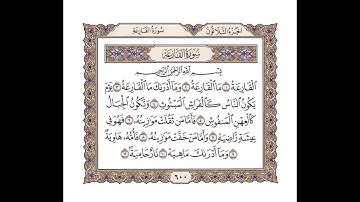 الجزء الثلاثون سورة القارعة
سورة القارعة
بسم الله الرحمن الرحيم
القارعة ١ ما القارعة ٢ وما أدراك ما القارعة ٣ يوم
يكون الناس كالفراش المبثوث ٤ وتكون الجبال
كالعهن المنفوش ٥ فأما من ثقلت موازينه ٦ فهو في
عيشة راضية ٧ وأما من خفت موازينه ٨ فأمه هاوية
٩ وما أدراك ماهية ١٠ نار حامية ١١
٦٠٠